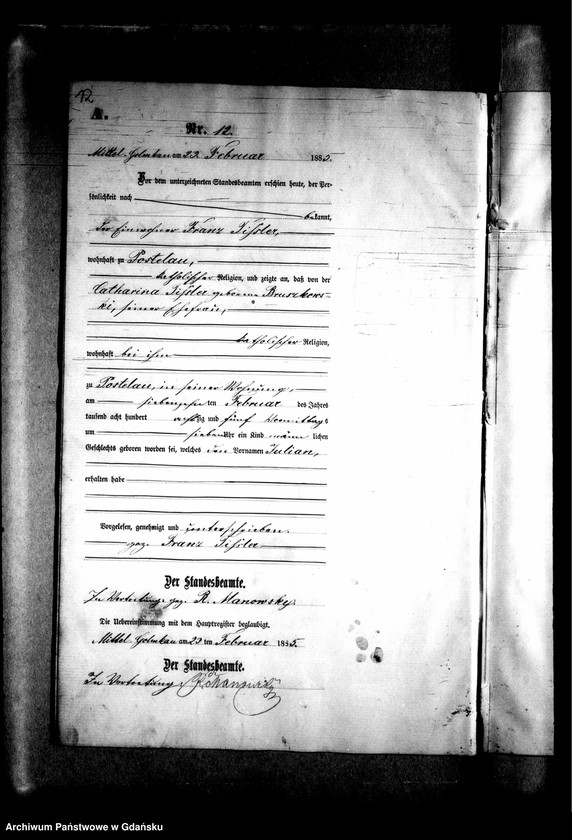 12
A.
Nr. 12.
Mittel Golmkau am 23. Februar 1885.
Vor dem unterzeichneten Standesbeamten erschien heute, der Per-
sönlichkeit nach
bekannt,
der Einwohner Franz Tißler,
wohnhaft zu Postelau,
katholischer Religion, und zeigte an, daß von der
Catharina Tißler geborene Bruszkows-
ki, seiner Ehefrau,
katholischer Religion,
wohnhaft bei ihm
zu Postelau, in seiner Wohnung,
am siebenzehnten Februar des Jahres
tausend acht hundert achtzig und fünf Vormittags
um sieben Uhr ein Kind männlichen
Geschlechts geboren worden sei, welches den Vornamen Julian,
erhalten habe
Vorgelesen, genehmigt und unterschrieben.
gez. Franz Tißler
Der Standesbeamte.
In Vertretung gez. R. Manowsky.
Die Uebereinstimmung mit dem Hauptregister beglaubigt.
Mittel Golmkau am 23 ten Februar 1885.
Der Standesbeamte.
In Vertretung
Archiwum Państwowe w Gdańsku